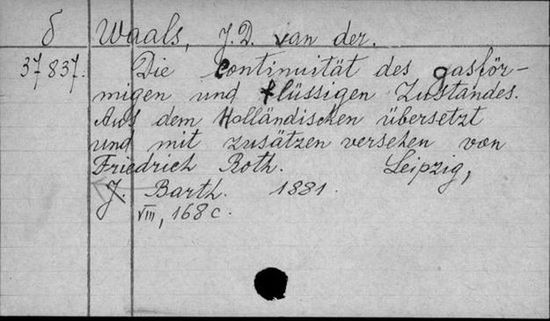 б Waals, J. D. van der.
37 837. Die Continuität des gasför-
migen und flüssigen Zustandes.
Aus dem Holländischen übersetzt
und mit zusätzen versehen von
Friedrich Roth. Leipzig,
J. Barth. 1881.
VIII, 168 c.